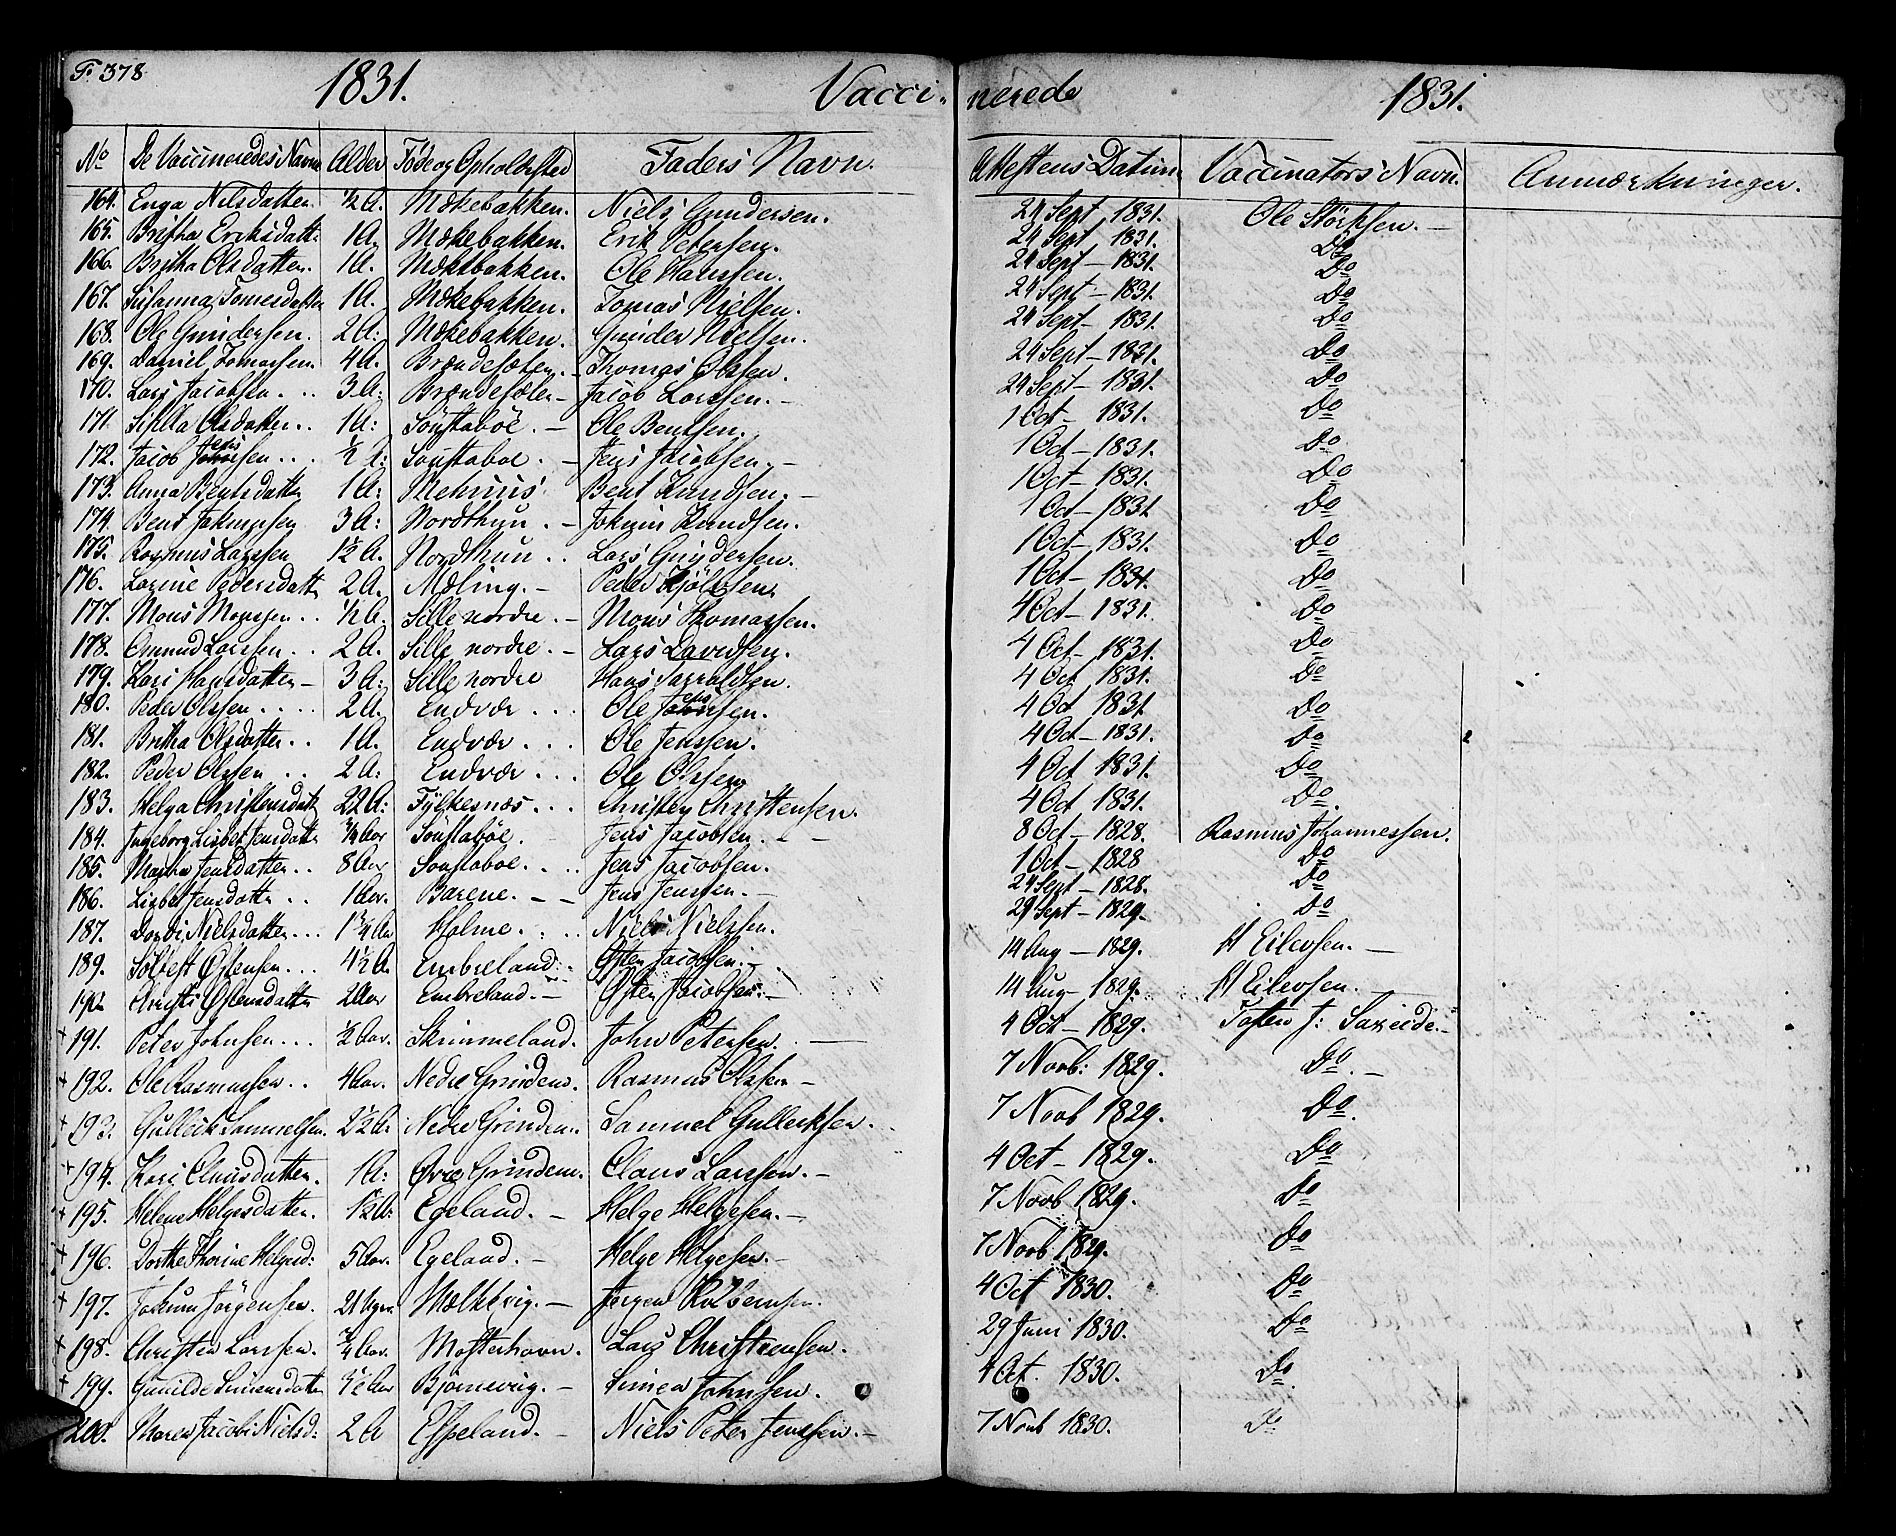 F. 378
1831. Vacci- nerede 1831.
No De Vaccineredes Navn Alder Føde og Opholdssted Faders Navn. Attestens Datum Vaccinators Navn. Anmærkninger.
164. Enga Nilsdatter. 1/2 A. Mækebakken. Niels Gundersen. 24 Sept 1831. Ole Störksen. -
165. Britha Eriksdatt: 1 A. Mækebakken. Erik Petersen. 24 Sept - 1831. Do
166. Britha Olsdatter. 1 A. Mækebakken. Ole Hansen. 24 Sept - 1831. Do
167. Susanna Tomesdatter 1 A. Mækebakken. Tomas Nielsen. 24 Sept - 1831. Do
168. Ole Gundersen. 2 A: Mækebakken. Gunder Nielsen. 24 Sept - 1831. Do
169. Daniel Tomassen. 4 A. Brændesæter. - Thomas Olssen. 24 Sept - 1831. Do
170. Lars Jacobsen. . . 3 A: Brændesæter - Jacob Larssen. - 24 Sept - 1831. Do
171. Sihlla Olsdatter. . 1 A: Söustaböe. - Ole Bentsen. 1 Oct - 1831. Do
172. Jacob Jensen. . . 1/2 A: Soustaboe. - Jens Jacobsen. - 1 Oct - 1831. Do
173. Anna Bentsdatter 1 A: Mehuus Bent Knudsen. - 1 Oct - 1831. Do
174. Bent Jokumsen 3 A: Nordthun. - Jokum Knudsen. 1 Oct - 1831 Do
175. Rasmus Larssen 1 1/2 A. Nordthun. . Lars Gundersen. 1 Oct - 1831. Do
176. Larine Pedersdatt 2 A. Mæling. - Peder Kjölssen. 1 Oct - 1831. Do
177. Mons Monssen. . 1/2 A. Sille nordre. - Mons Thomassen. 4 Oct - 1831. Do
178. Omund Larssen. . 2 A. Sille nordre. - Lars Davidsen. 4 Oct - 1831. Do
179. Kari Hansdatter - 3 A: Sille nordre Hans 4 Oct - 1831. Do
180. Peder Olssen. . . . 2 A. Endvær . . . Ole Jensen. 4 Oct 1831 Do
181. Britha Olsdatter. . 1 A. Endvær . . . Ole Jenssen. 4 Oct - 1831. Do
182. Peder Olssen . . 2 A: Endvær . . . Ole Olssen 4 Oct 1831. Do
183. Helga Christensdatt 22 A: Fylkesnæs. . . Christen Christensen. 4 Oct 1831. Do.
184. Ingeborg Lisbet Jensdatt 3/4 Aar Söustaböe. Jens Jacobsen. - - 8 Oct - 1828. Rasmus Johannessen.
185. Martha Jensdatter. . 8 Aar Soustaboe. . . Jens Jacobsen. 1 Oct - 1828 Do
186. Lisbet Jensdatter . . 1 Aar. Barene. - - Jens Jenssen. - 24 Sept - 1828. Do
187. Dordi Nielsdatter. . . 1 3/4 Aar Holme. . . . Niels Nielssen. 29 Sept - 1829. Do
189. Solvest Östensen. . . 4 1/2 A. Embreland. . Östen Jacobsen. - 14 Aug - 1829. H Eilevsen. -
190. Christi Östensdatter 2 Aar Embreland. - Östen Jacobsen. - 14 Aug - 1829. H Eilevsen. -
+ 191. Peter Johnsen. . . 1/2 Aar. Skimmeland. John Petersen. . - 4 Oct - 1829. Tosten J: Saxeide. -
+ 192. Ole Rasmussen. . 4 Aar. Nedre Grinden. Rasmus Olssen - 7 Novb: 1829. Do. -
+ 193. Gullich Samuelsen. 2 1/2 A: Nedre Grinden. Samuel Gullecksen. 7 Novb 1829. Do.
+ 194. Kari Clausdatter. 1 A: Øvre Grinden. Claus Larssen. - 4 Oct - 1829. Do
+ 195. Helene Helgesdatter. 1 1/2 A: Egeland. - Helge Helgesen. - 7 Novb 1829. Do
+ 196. Dorthe Thorine Helgesd: 5 Aar. Egeland. - Helge Helgesen. - 7 Novb 1829. Do
+ 197. Jokum Jörgensen. 21 Uger Mælkevig. - Jørgen 4 Oct 1830. Do
+ 198. Christen Larssen. 3/4 Aar. Mosterhavn. Lars Christensen. 29 Juni 1830. Do
+ 199. Gunilde Simensdatter 4 1/2 Aar Bjørnevig. - Simen Johnsen. 4 Oct. 1830. Do.
200. Maren Jacobi Nielsd: 2 A Espeland. - Niels Peter Jenssen. - 7 Novb 1830. Do